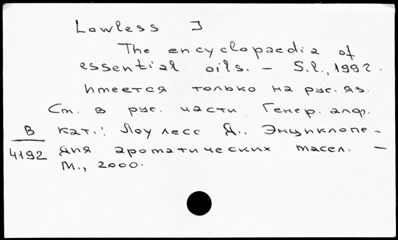 Lawless J
The encyclopaedia of
essential oils. – S.l., 1992.
Имеется только на рус. яз.
См. в рус. части Генер. алф.
В
4192
кат.: Лоулесс Д.. Энциклопе-
дия ароматических масел. –
М., 2000.